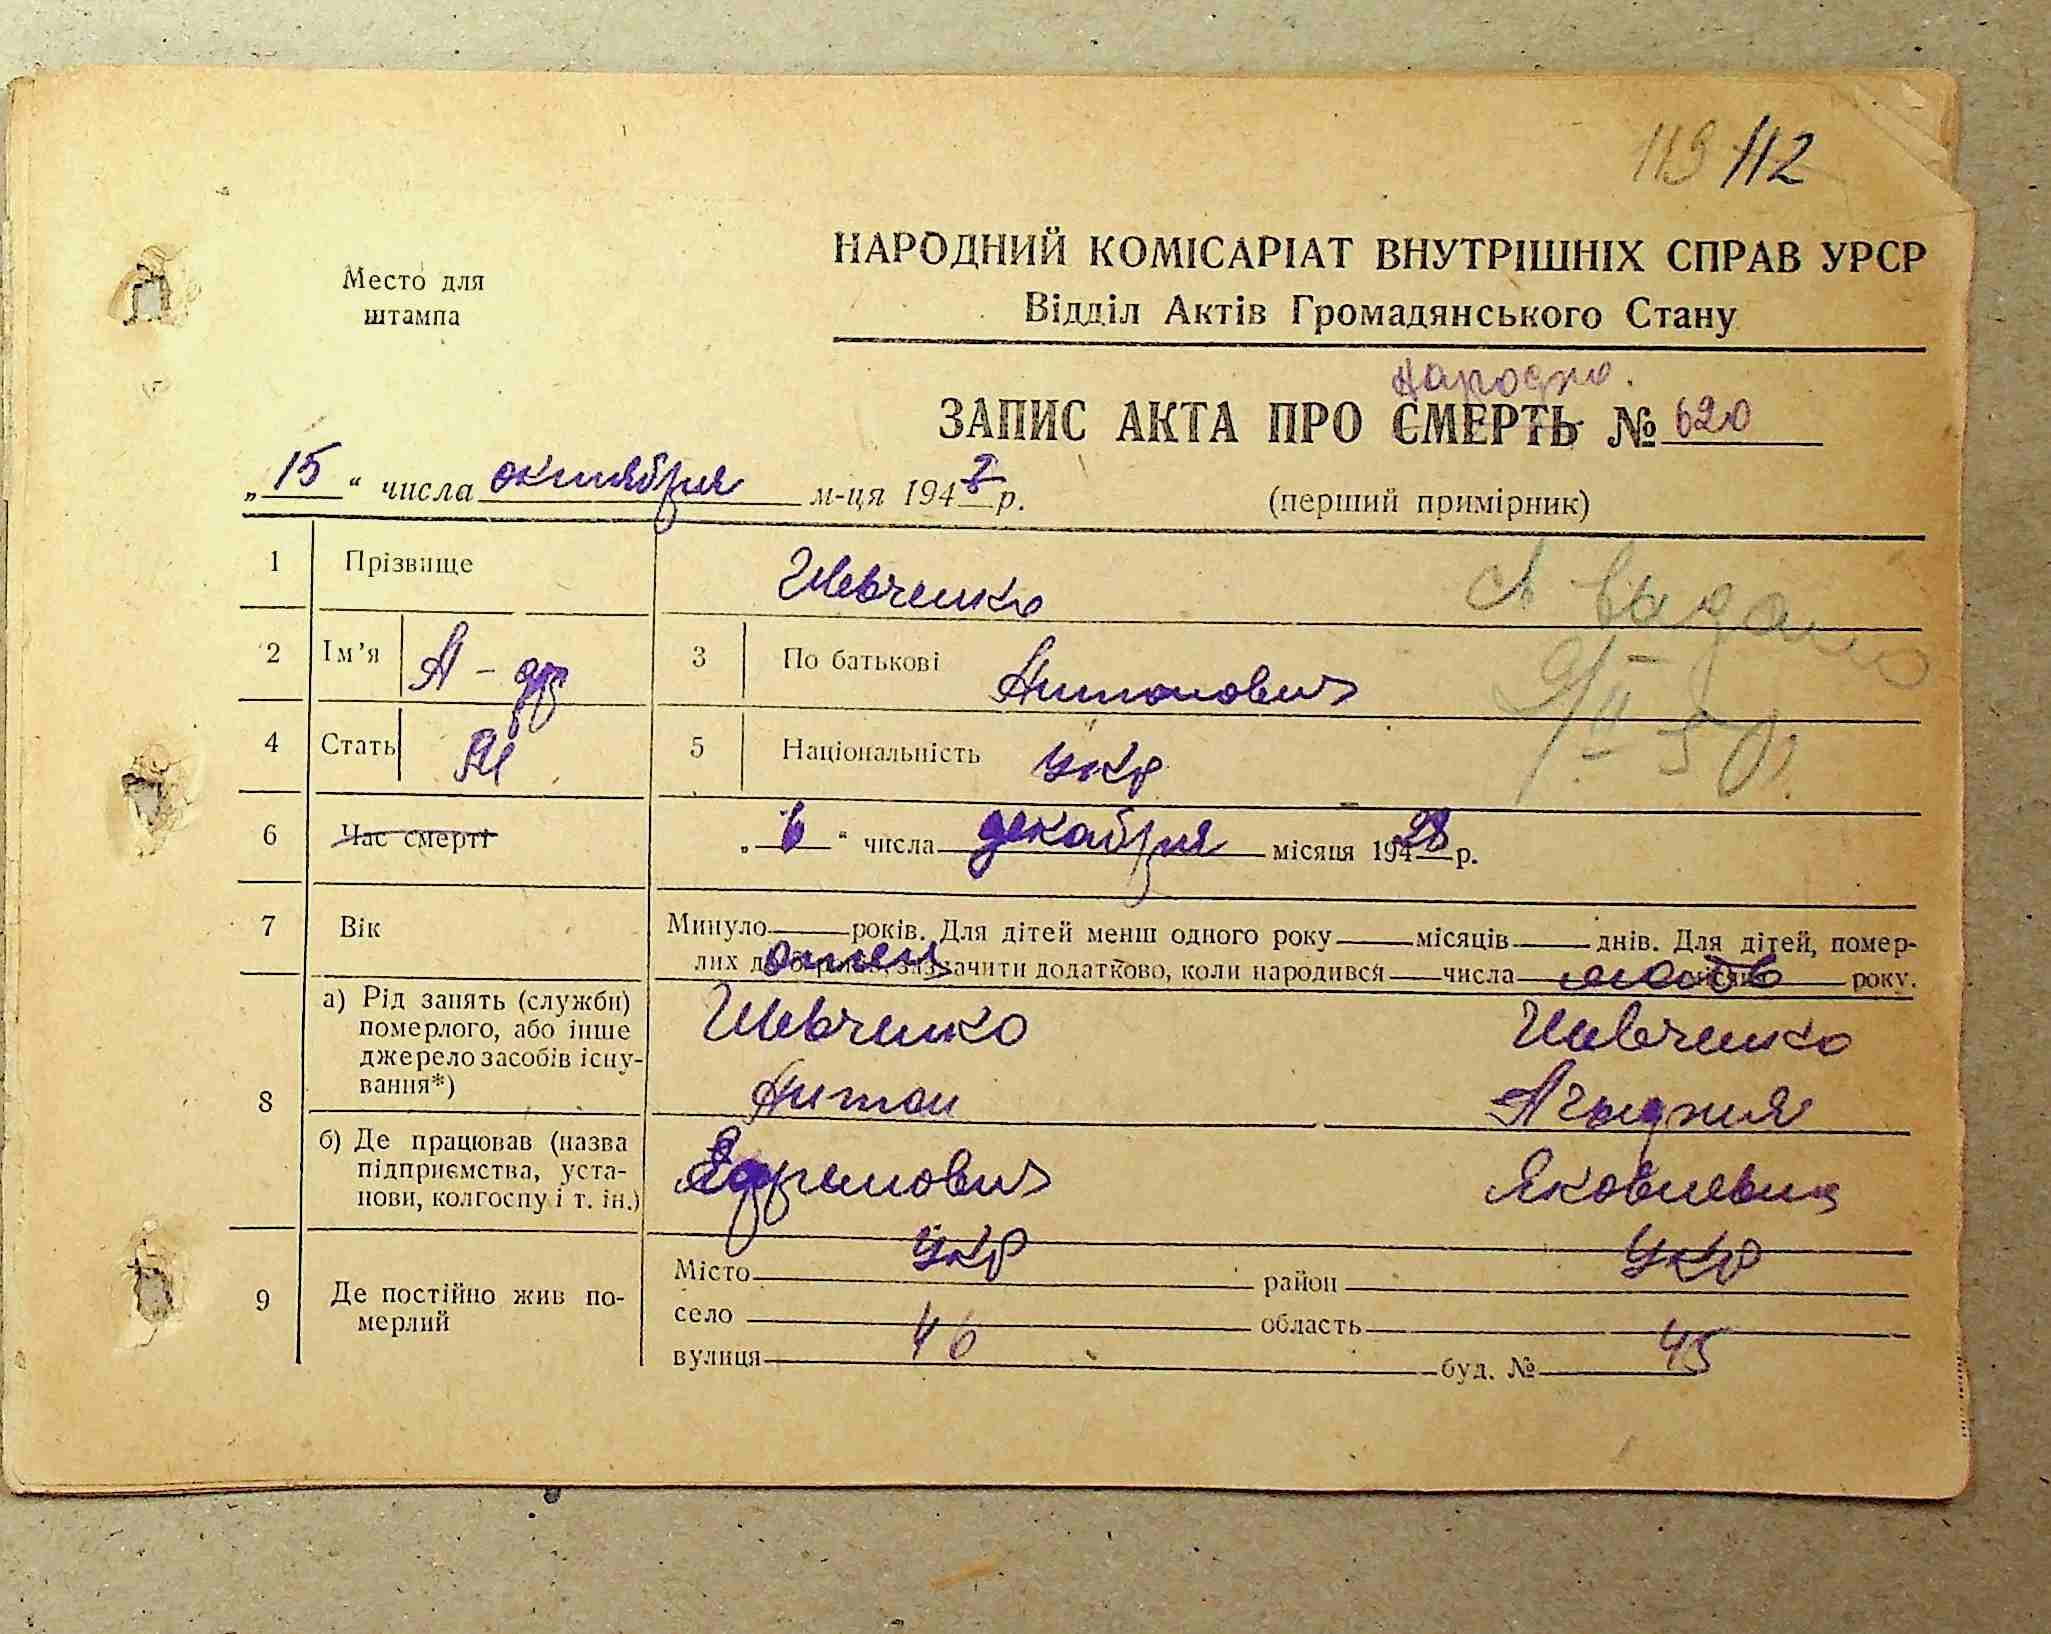 119 112
Место для
штампа
НАРОДНИЙ КОМІСАРІАТ ВНУТРІШНІХ СПРАВ УРСР
Відділ Актів Громадянського Стану
народж.
ЗАПИС АКТА ПРО СМЕРТЬ № 620
„15“ числа октября м-ця 194 р.
(перший примірник)
1 Прізвище Шевченко
2 Ім'я А-др 3 По батькові Антонович
4 Стать М 5 Національність укр
св выдано
9/II 50
6 Час смерті „6“ числа декабря місяця 1928 р.
7 Вік Минуло року. Для дітей менш одного року місяців днів. Для дітей, помер-
лих до років, зазначити додатково, коли народився числа року.
отец мать
8 а) Рід занять (служби)
померлого, або інше
джерело засобів існу-
вання*)
Шевченко Шевченко
Антон
б) Де працював (назва
підприємства, уста-
нови, колгоспу і т. ін.)
Ефремович Яковлевна
укр укр
9 Де постійно жив по-
мерлий
Місто район
село область
46 45
вулиця буд. №